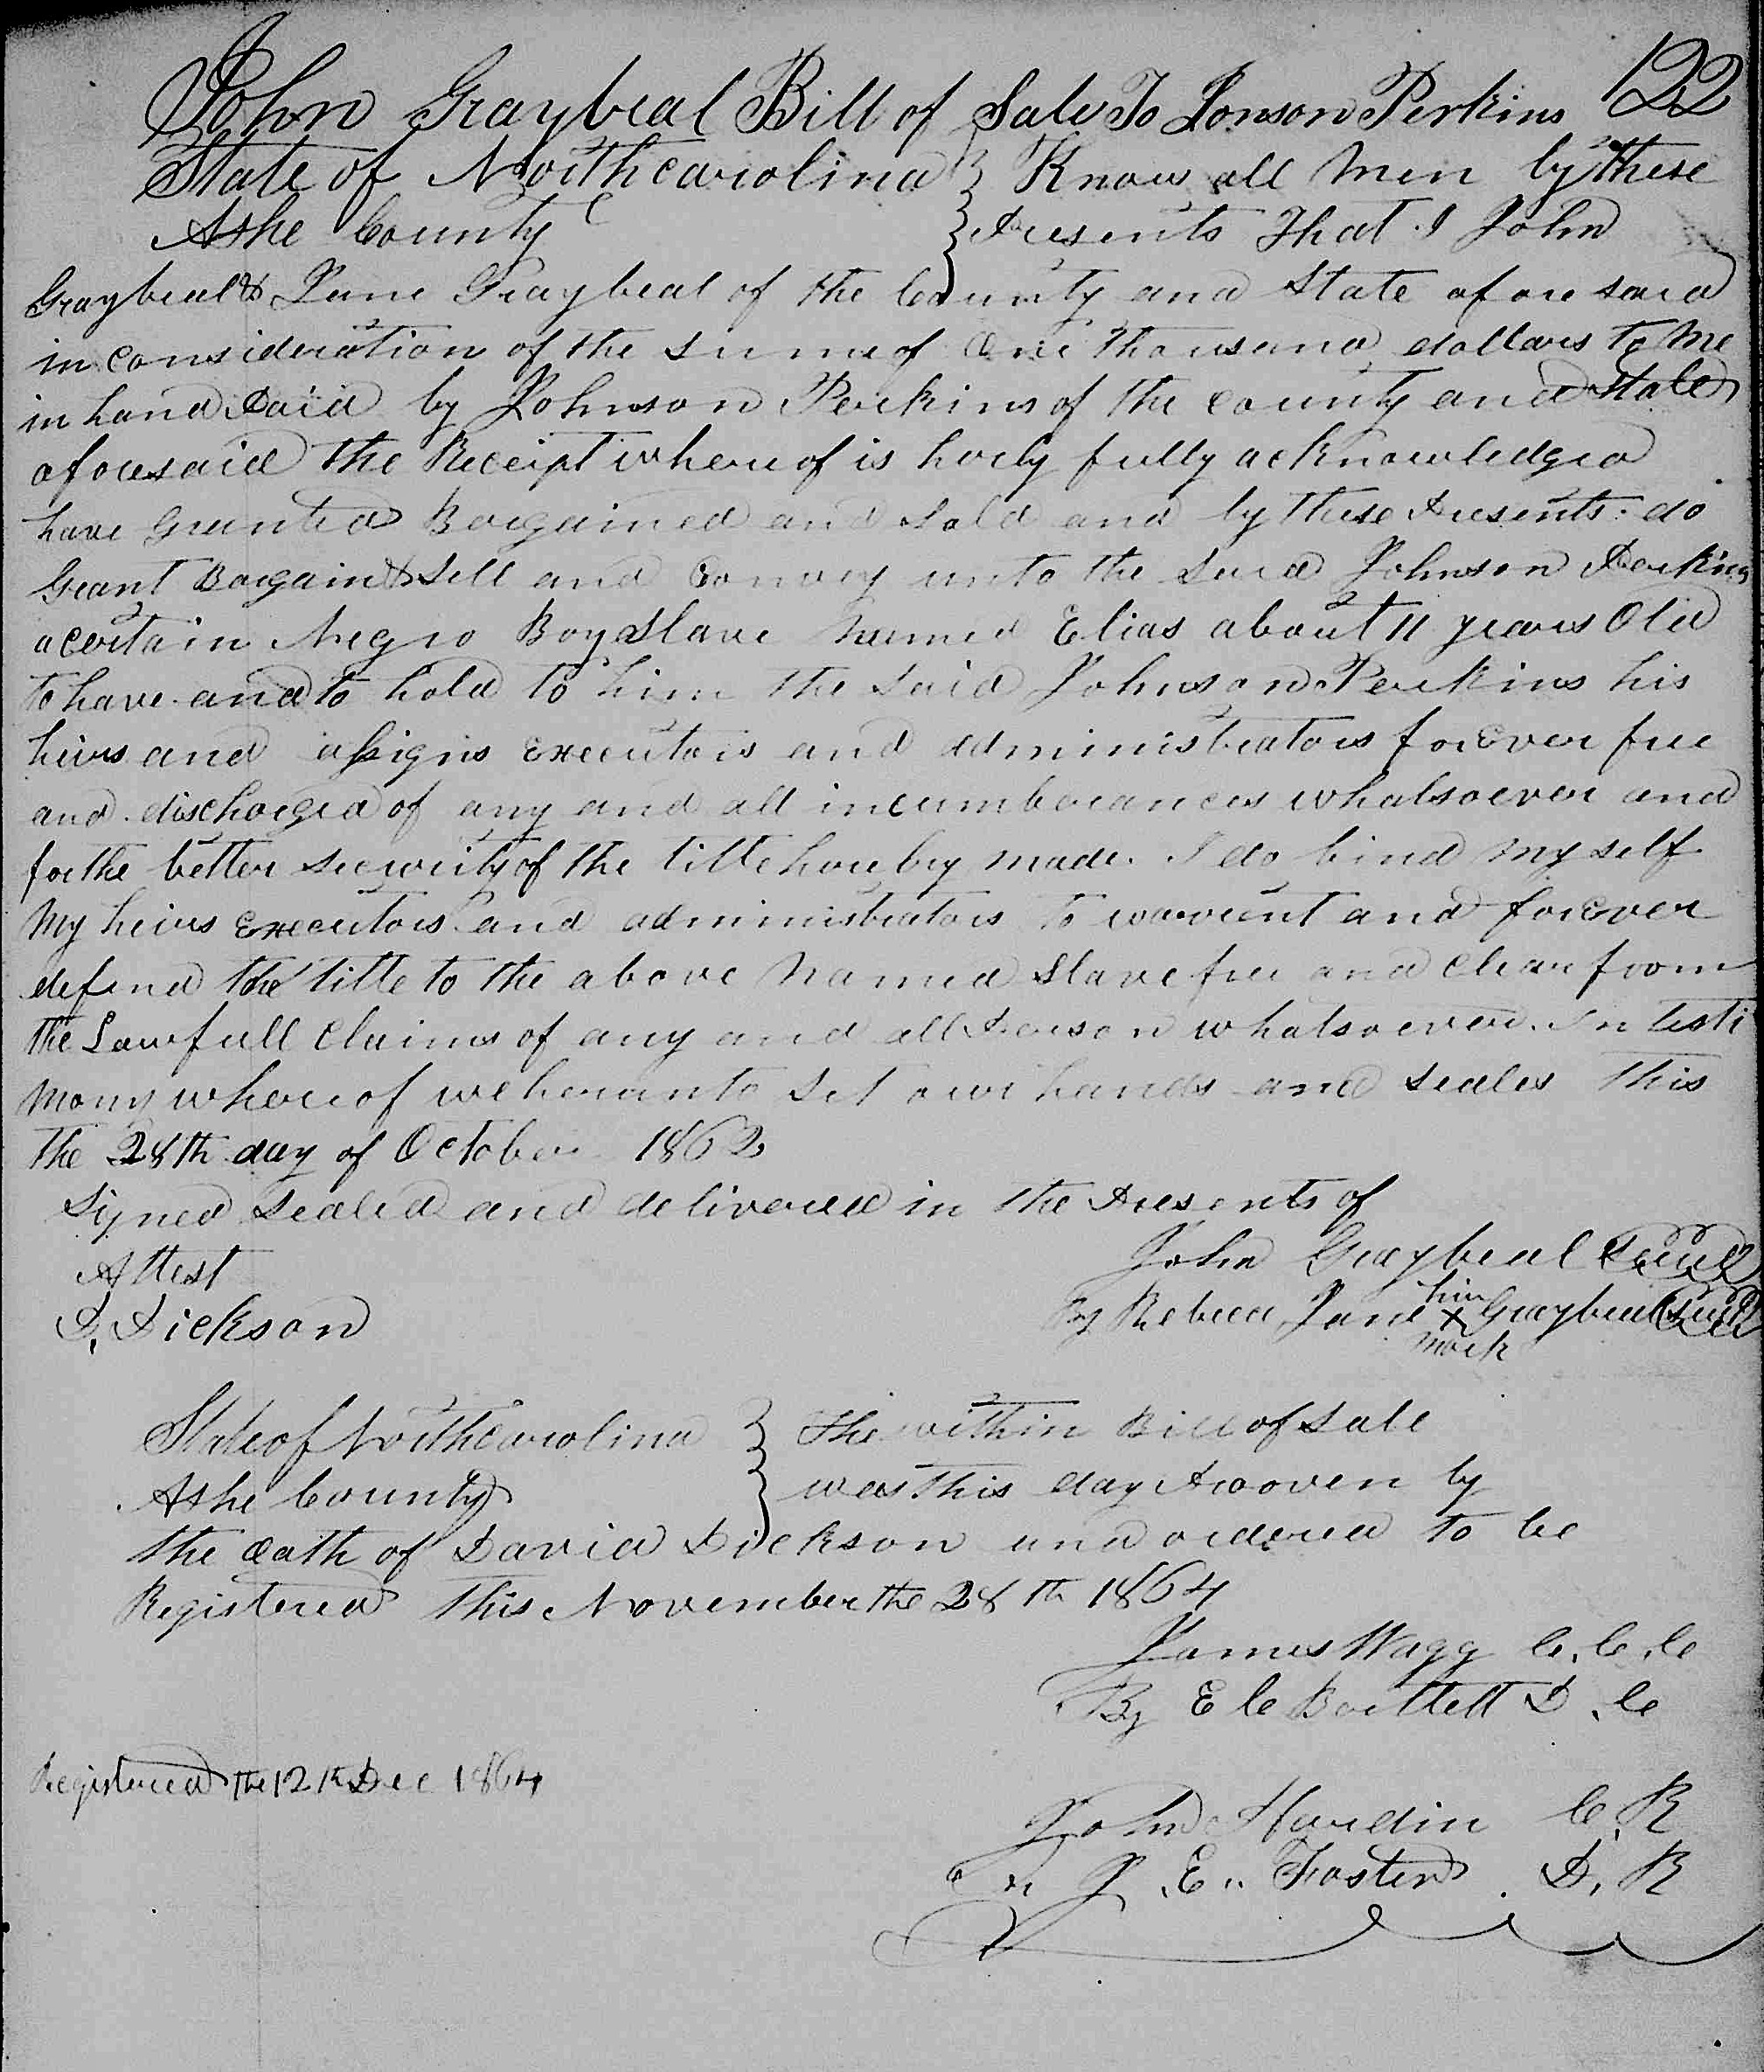 John Graybeal Bill of Sale To Jonson Perkins 122
State of Northcarolina } Know all Men by these
Ashe County } Presents That I John
Graybeal & Jane Graybeal of the County and State afore said
in consideration of the sume of One thousand dollars to Me
in hand Paid by Johnson Perkins of the county and State
aforesaid the Receipt whereof is herby fully acknowledged
have Granted Bargained and Sold and by these Presents do
Grant Bargain & Sell and Convey unto the Said Johnson Perkins
a certain Negro Boy Slave Named Elias about 11 years Old
to have and to hold to him the Said Johnson Perkins his
heirs and assigns Executors and administrators forEver free
and discharged of any and all incumberances whatsoever and
for the better security of the title hereby made. I do bind My self
My heirs Executors and administrators to warrent and forever
defend the title to the above Named Slave free and clear from
the Lawfull Claims of any and all Person whatsoever. In testi
mony whereof we hereunto set our hands and seales this
the 28th day of October 1862
Signed Sealed and delivered in the Presents of
Attest John Graybeal Seal
D. Dickson By Rebeca Jane her X mark Graybeal Seal
State of Northcarolina } The within Bill of Sale
Ashe County } was this dayProoven by
the Oath of David Dickson and ordered to be
Registered this November the 28th 1864
James Wagg C. C. C
By E C Bartlett D. C
Registered the 12th Dec 1864
John Hardin C. R
J. E. Foster D. R